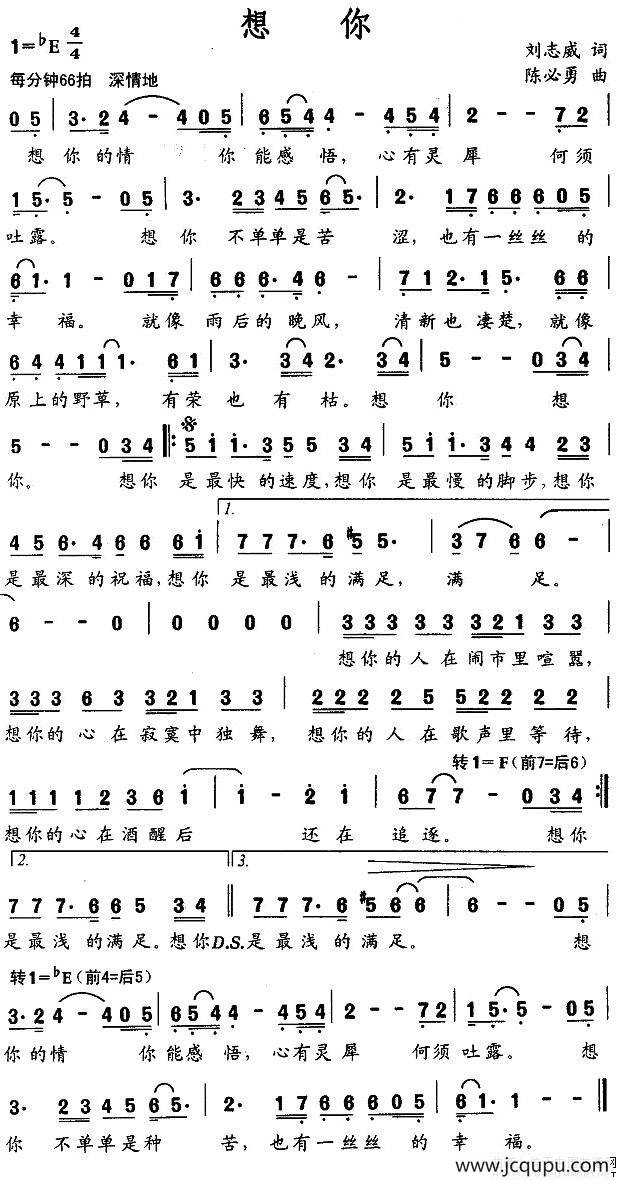 想 你
1=♭E 4/4
刘志威 词
每分钟66拍 深情地
陈必勇 曲
0 5 | 3· 2 4 - 4 0 5 | 6 5 4 4 4 - 4 5 4 | 2 - - 7 2 |
想 你 的 情 你 能 感 悟, 心 有 灵 犀 何 须
1 5· 5 - 0 5 | 3· 2 3 4 5 6 5· | 2· 1 7 6 6 6 0 5 |
吐 露。 想 你 不 单 单 是 苦 涩, 也 有 一 丝 丝 的
6 1· 1 - 0 1 7 | 6 6 6· 4 6 - | 7 1 2· 1 5· 6 6 |
幸 福。 就 像 雨 后 的 晚 风, 清 新 也 凄 楚, 就 像
6 4 4 1 1 1· 6 1 | 3· 3 4 2· 3 4 | 5 - - 0 3 4 |
原 上 的 野 草, 有 荣 也 有 枯。 想 你 想
5 - - 0 3 4 |: 5 i i· 3 5 5 3 4 | 5 i i· 3 4 4 2 3 |
你。 想 你 是 最 快 的 速 度, 想 你 是 最 慢 的 脚 步, 想 你
1.
4 5 6· 4 6 6 6 i | 7 7 7· 6 #5 5· | 3 7 6 6 - |
是 最 深 的 祝 福, 想 你 是 最 浅 的 满 足, 满 足。
6 - - 0 | 0 0 0 0 | 3 3 3 3 3 3 2 1 3 3 |
想 你 的 人 在 闹 市 里 喧 嚣,
3 3 3 6 3 3 2 1 3 3 | 2 2 2 2 5 5 2 2 2 2 |
想 你 的 心 在 寂 寞 中 独 舞, 想 你 的 人 在 歌 声 里 等 待,
转1=F(前7=后6)
1 1 1 1 2 3 6 i | i - 2 i | 6 7 7 - 0 3 4 :|
想 你 的 心 在 酒 醒 后 还 在 追 逐。 想 你
2. 3.
7 7 7· 6 6 5 3 4 || 7 7 7· 6 #5 6 6 | 6 - - 0 5 |
是 最 浅 的 满 足。想 你 D.S. 是 最 浅 的 满 足。 想
转1=♭E(前4=后5)
3· 2 4 - 4 0 5 | 6 5 4 4 - 4 5 4 | 2 - - 7 2 | 1 5· 5 - 0 5 |
你 的 情 你 能 感 悟, 心 有 灵 犀 何 须 吐 露。 想
3· 2 3 4 5 6 5· | 2· 1 7 6 6 6 0 5 | 6 1· 1 - - ‖
你 不 单 单 是 种 苦, 也 有 一 丝 丝 的 幸 福。
www.jcqupu.com